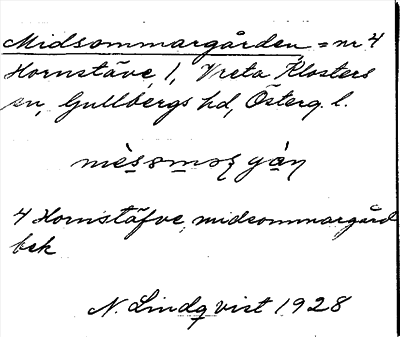 Midsommargården = nr 4
Hornstäve, 1, Vreta Klosters
sn, Gullbergs hd, Österg. l.
4 Hornstäfve, midsommargård
bsk
N. Lindqvist 1928